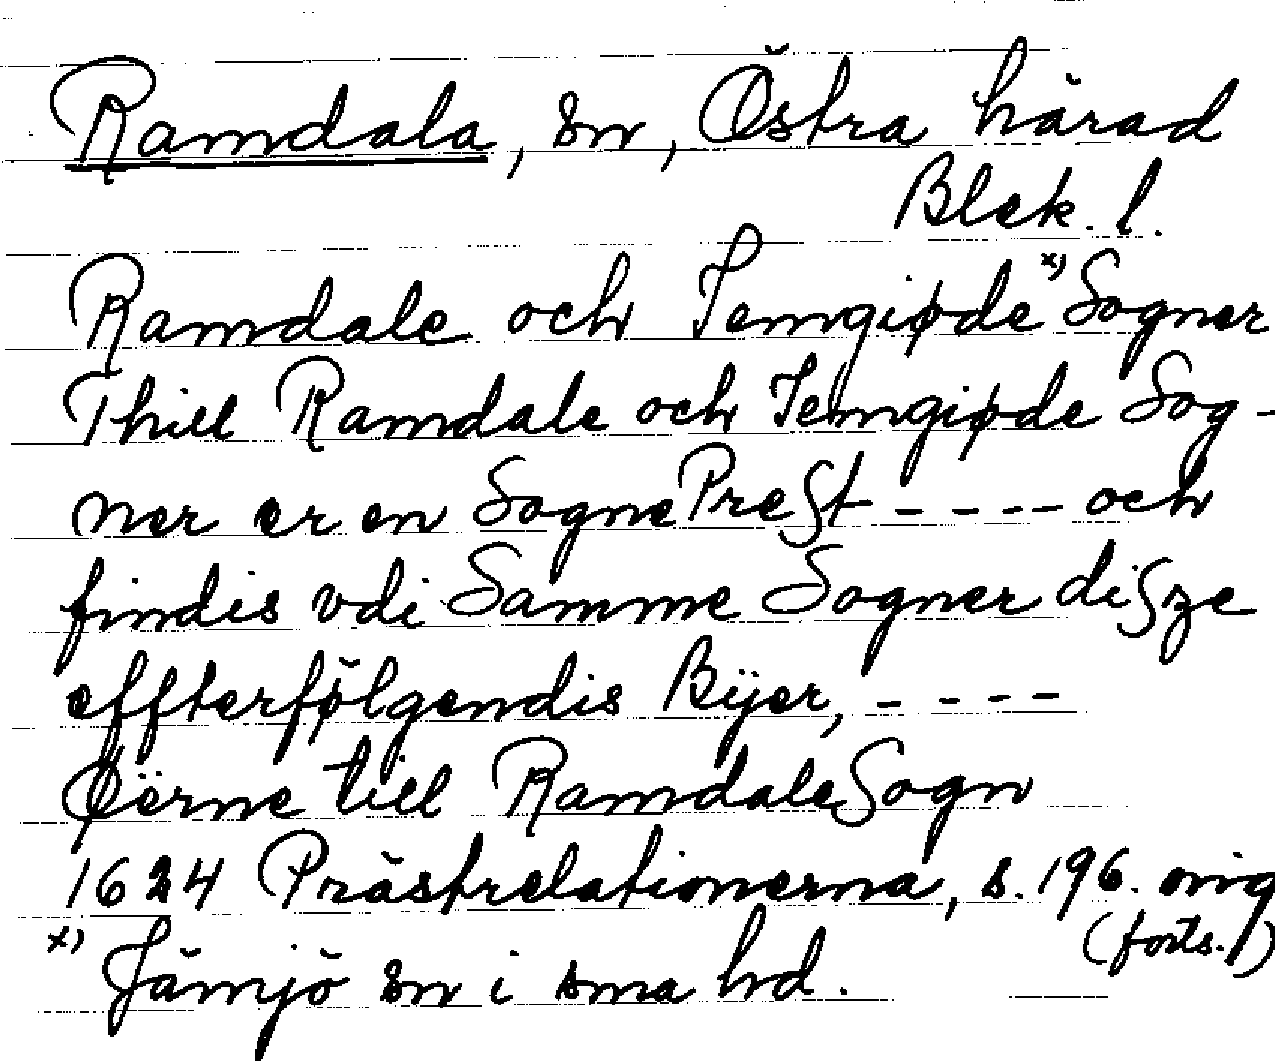 Ramdala, sn, Östra härad
Blek. l.
Ramdale och Jemgiøde x) Sogner
Thill Ramdale och Jemgiøde Sog-
ner er en Sogne Prest - - - - och
findis vdi Samme Sogner disze
effterfølgendis Bÿer, - - - -
Øërne till Ramdale Sogn
1624 Prästrelationerna, s. 196. orig
(forts.)
x) Jämjö sn i sma hd.